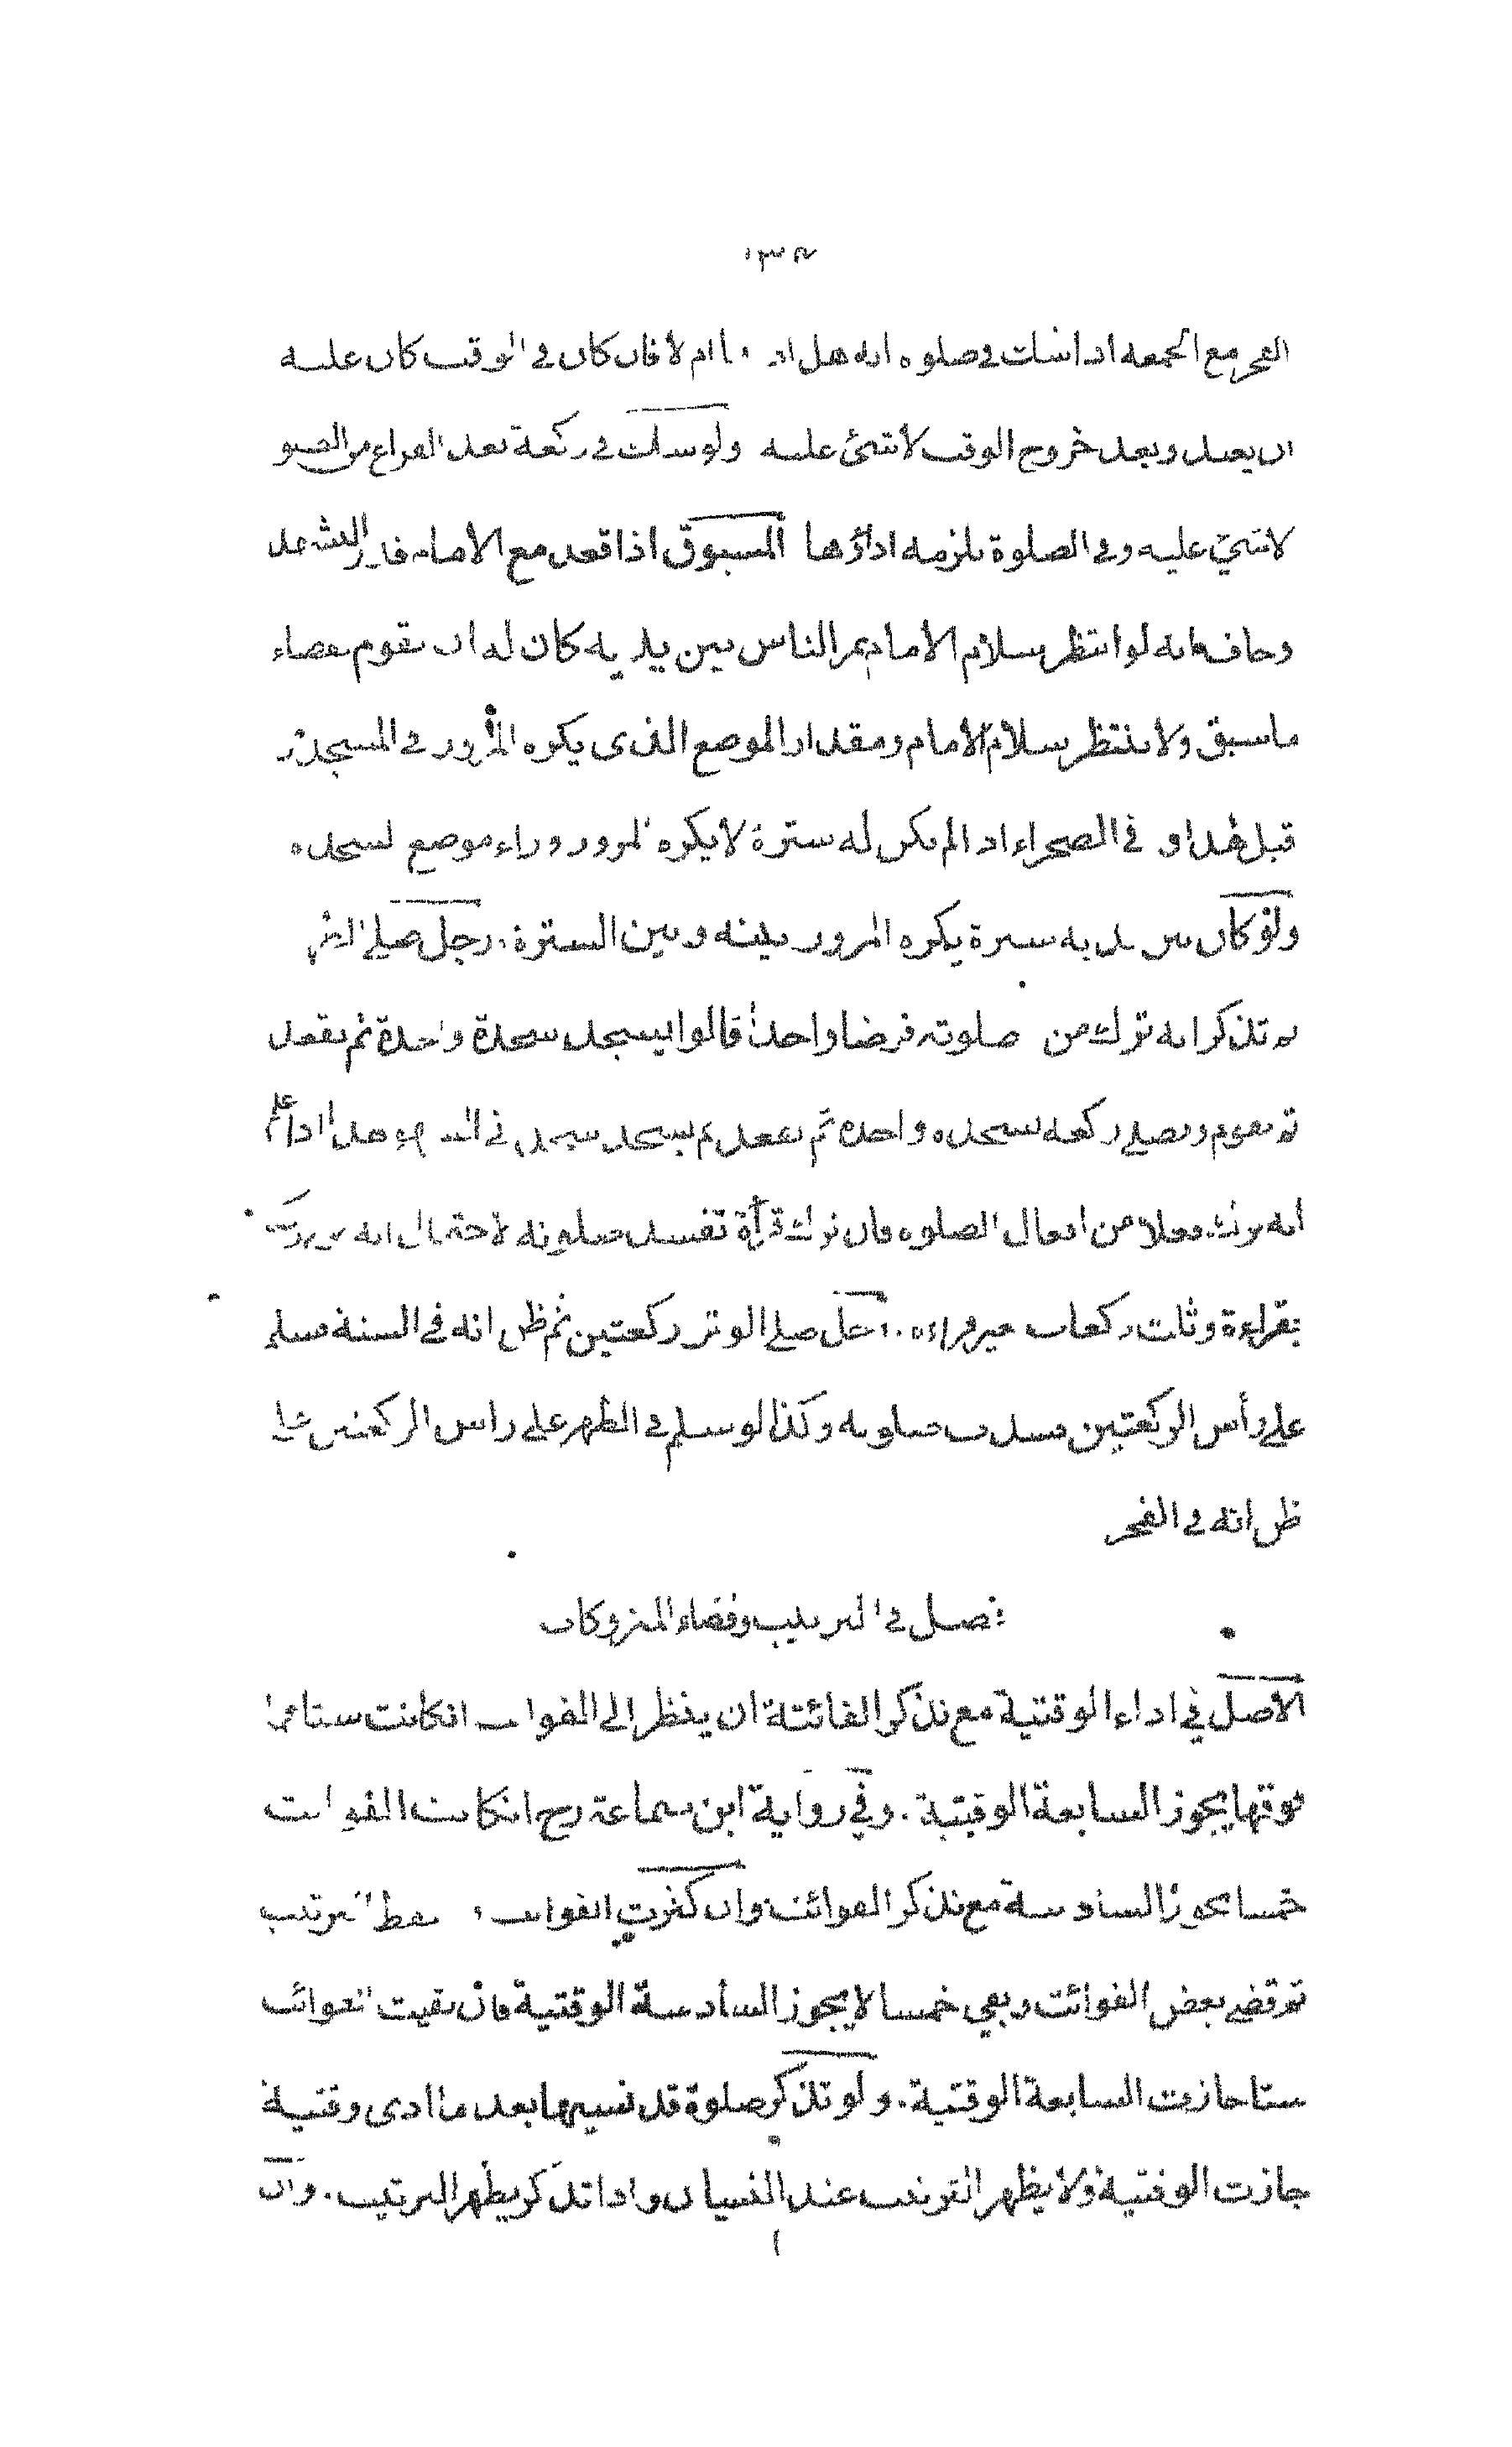 ١٣٨
الفجر مع الجمعة اذا شك في صلوة انه هل اداها ام لا فان كان في الوقت كان عليه
ان يعيد وبعد خروج الوقت لا شئ عليه ولو شك في ركعة بعد الفراغ من الصلو
لا شئ عليه وفي الصلوة يلزمه اداؤها المسبوق اذا قعد مع الامام قدر التشهد
وخاف انه لو انتظر سلام الامام يمر الناس بين يديه كان له ان يقوم بقضاء
ما سبق ولا ينتظر سلام الامام ومقدار الموضع الذى يكره المرور في المسجد
قبل هذا و في الصحراء اذا لم يكن له سترة لا يكره المرور وراء موضع سجده
ولو كان بين يديه سترة يكره المرور بينه وبين السترة. رجل صلى
تذكر انه ترك من صلوته فرضا واحدا قالوا يسجد سجدة واحدة ثم يقعد
ثم يقوم ويصلي ركعة بسجدة واحدة ثم يقعد ثم يسجد سجدتي السهو هذا اذا علم
انه ترك فعلا من افعال الصلوة فان ترك قرآة تفسد صلوته لاحتمال انه
بقراءة وثلث ركعات بغير قراءة. رجل صلى الوتر ركعتين ثم ظن انه في السنة فسلم
على رأس الركعتين فسدت صلوته وكذا لو سلم في الظهر على راس الركعتين على
ظن انه في الفجر
فصل في الترتيب وقضاء المتروكات
الاصل في اداء الوقتية مع تذكر الفائتة ان ينظر الى الفوائت انكانت ستا فما
فوقها يجوز السابعة الوقتية. وفي رواية ابن سماعة رح انكانت الفوائت
خمسا يجوز السادسة مع تذكر الفوائت وان كثرت الفوائت سقط الترتيب
ثم قضى بعض الفوائت وبقي خمسا لا يجوز السادسة الوقتية فان بقيت الفوائت
ستا جازت السابعة الوقتية. ولو تذكر صلوة قد نسيها بعد ما ادى وقتية
جازت الوقتية ولا يظهر الترتيب عند النسيان واذا تذكر يظهر الترتيب. وان